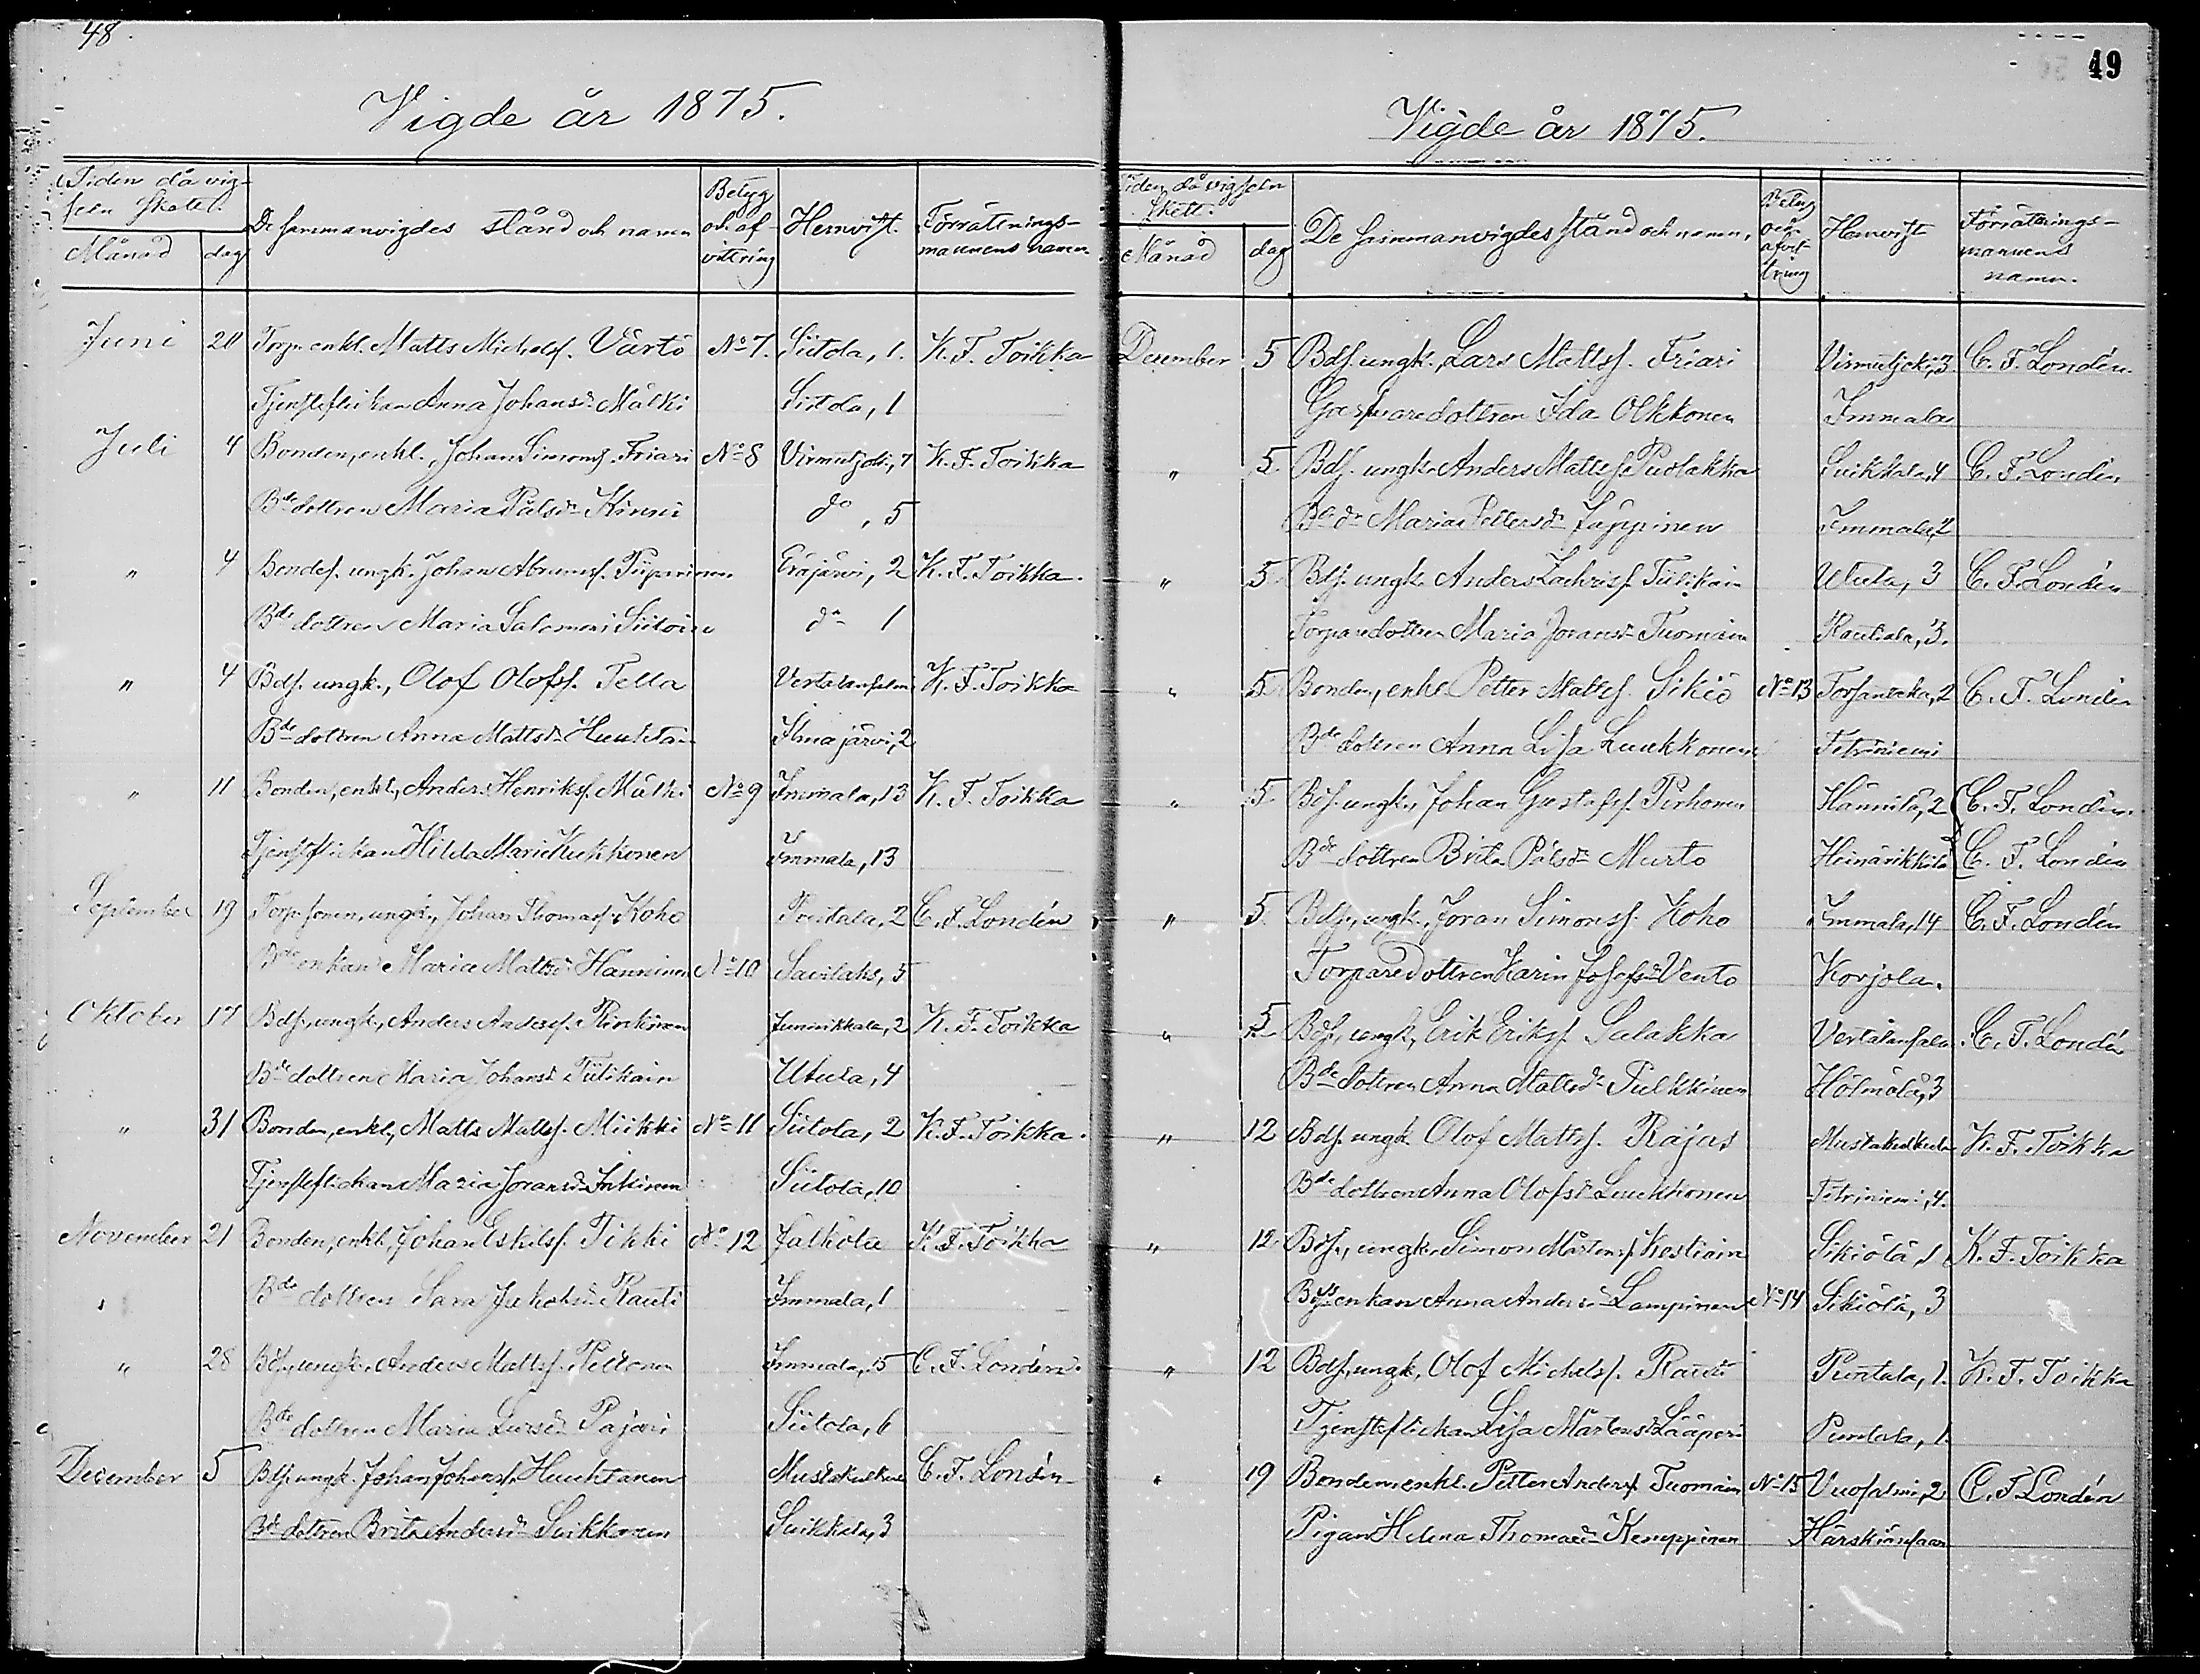 48.
Vigde år 1875.
Tiden då vig- De sammanvigdes stånd och namn Betyg Hemvist. Förrättnings-
seln skett. och af- mannens namn.
Månad dag vittring
Juni 20 Torp. enkl. Matts Michelss. Värtö No 7. Siitola, 1. K. F. Toikka
Tjensteflickan Anna Johansdr Mälki Siitola, 1
Juli 4 Bonden, enkl. Johan Simonss. Friari No 8 Virmutjoki, 7 K. F. Toikka
Bde dottren Maria Pålsdr Kinni do, 5
" 4 Bondes. ungk. Johan Abramss. Piiparinen Eräjärvi, 2 K. F. Toikka.
Bde dottren Maria Salomoni Siitoin do 1
" 4 Bds. ungk., Olof Olofss. Tella Vertalansalmi K. F. Toikka
Bde dottren Anna Mattsdr Huuhtan Ilmajärvi, 2
" 11 Bonden, enkl., Anders Henrikss. Mälki No 9 Immala, 13 K. F. Toikka
Tjensteflickan Hilda Maria Kukkonen Immala, 13
September 19 Torp. sonen, ungk., Johan Thomass. Koho Puntala, 2 C. F. Londén
Bde enkan Maria Mattsdr Hanninen No 10 Savilaks, 5
Oktober 17 Bds., ungk., Anders Anderss. Rinkinen Junnikkala, 2 K. F. Toikka
Bde dottren Maria Johansdr Tiilikain Utula, 4
" 31 Bonden, enkl., Matts Mattss. Miikki No 11 Siitola, 2 K. F. Toikka.
Tjensteflickan Maria Joransdr Inkinen Siitola, 10
November 21 Bonden, enkl., Johan Eskilss. Tikki No 12 Jalkola K. F. Toikka
Bde dottren Sara Jakobsdr Rauti Immala, 1
" 28 Bds., ungk., Anders Mattss. Peltonen Immala, 15 C. F. Londén.
Bde dottren Maria Larsdr Pajari Siitola, 6
December 5 Bds. ungk. Johan Johanss. Huuhtanen Mustakulkula C. F. Londén
Bde dottren Brita Andersdr Suikkonen Suikkala, 3
49
Vigde år 1875.
Tiden då vigseln De sammanvigdes stånd och namn. Betyg Hemvist Förrättnings-
skett. och mannens
Månad dag afvit- namn.
tring
December 5 Bds. ungk., Lars Mattss. Friari Virmutjoki, 3 C. F. Londén.
Torparedottren Ida Olkkonen Immala
" 5. Bds. ungk. Anders Mattss. Puolakka Suikkala, 4 C. F. Londén
Bde dr Maria Pettersdr Jäppinen Immala, 2
" 5. Bds. ungk. Anders Zachriss. Tiilikain Utula, 3 C. F. Londén
Torparedottren Maria Joransdr Tuomain Rautiala, 3.
" 5. Bonden, enkl. Petter Mattss. Sikiö No 13 Torsansska, 2 C. F. Londén
Bde dottren Anna Lisa Luukkonen Tetriniemi
" 5. Bds. ungk., Johan Gustafss. Pirhonen Hännilä, 2 C. F. Londén.
Bde dottren Brita Pålsdr Murto Heinärikkilä C. F. Londén
" 5. Bds., ungk., Joran Simonss. Koho Immala, 14 C. F. Londén
Torparedottren Karin Josefsdr Vento Korjola.
" 5. Bds., ungk, Erik Erikss. Sulakka Vertalansalm C. F. Londén
Bde dottren Anna Mattsdr Pulkkinen Hölmölä, 3
" 12 Bds. ungk. Olof Mattss. Rajas Mustakulkula K. F. Toikka
Bde dottren Anna Olofsdr Luukkonen Tetriniemi, 4.
" 12. Bds., ungk. Simon Mårtenss. Kostiain Sikiölä, 1 K. F. Toikka
Bdsenkan Anna Andersdr Lampinen No 14 Sikiölä, 3
" 12 Bds., ungk, Olof Michelss. Rauti Puntala, 1. K. F. Toikka
Tjensteflickan Lisa Mårtensdr Lääperi Puntala, 1.
" 19 Bonden enkl. Petter Anderss. Tuomain No 15 Vuosalmi, 2 C. F. Londén
Pigan Helena Thomasdr Kemppinen Härskiänsaari